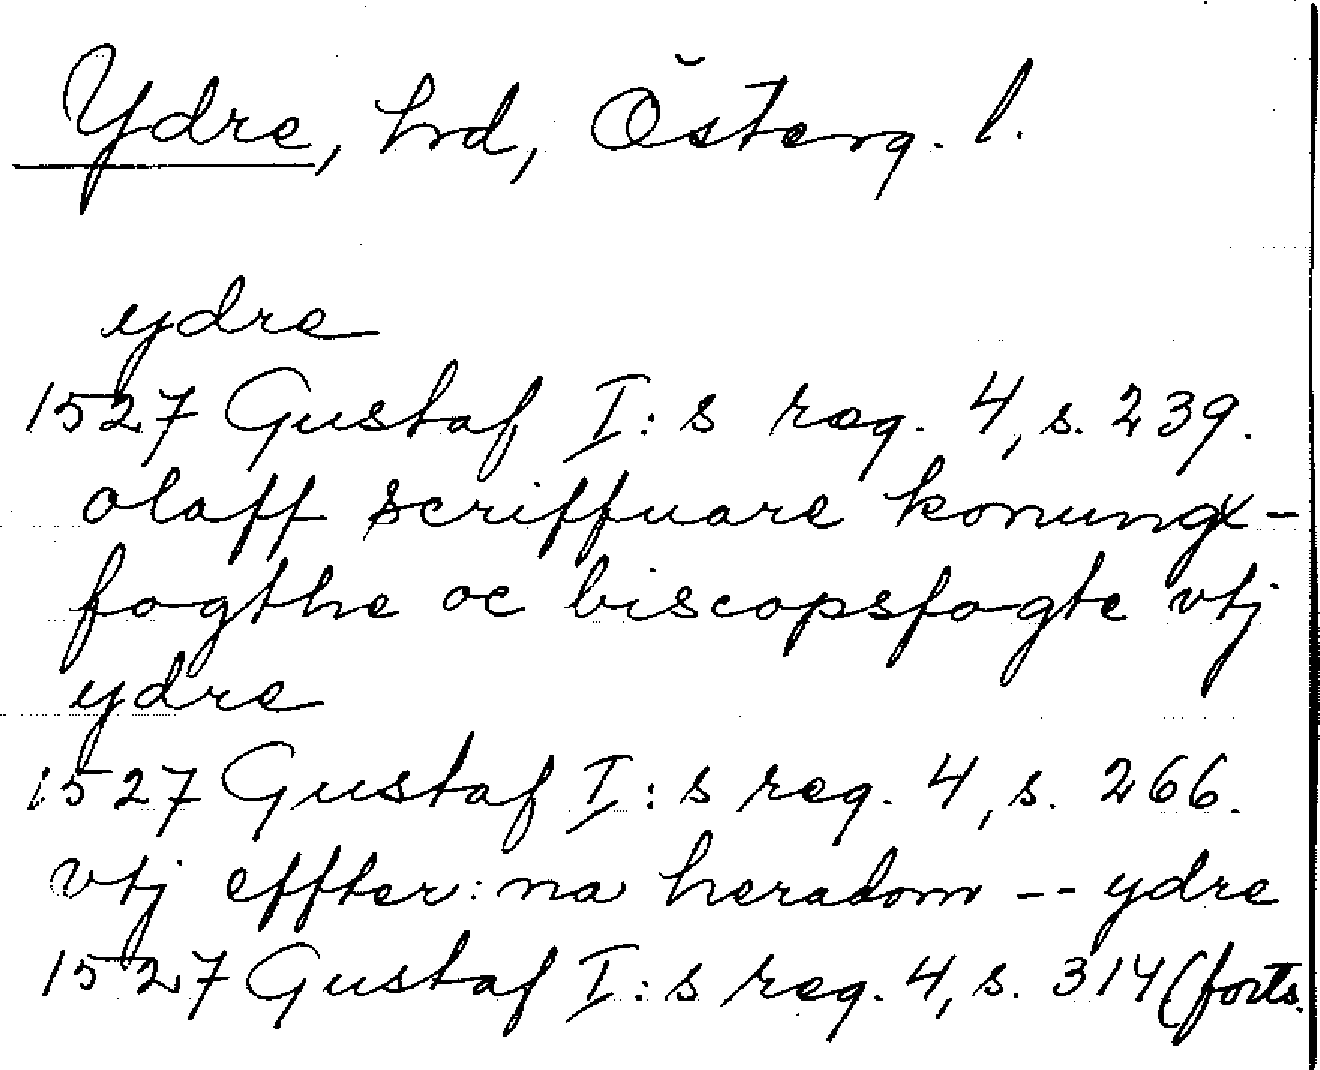 Ydre, hrd, Österg. l.
ydre
1527 Gustaf I:s reg. 4, s. 239.
olaff scriffuare konungx-
fogthe oc biscopsfogte vtj
ydre
1527 Gustaf I:s reg. 4, s. 266.
vtj effter:na heradom -- ydre
1527 Gustaf I:s reg. 4, s. 314 (forts.